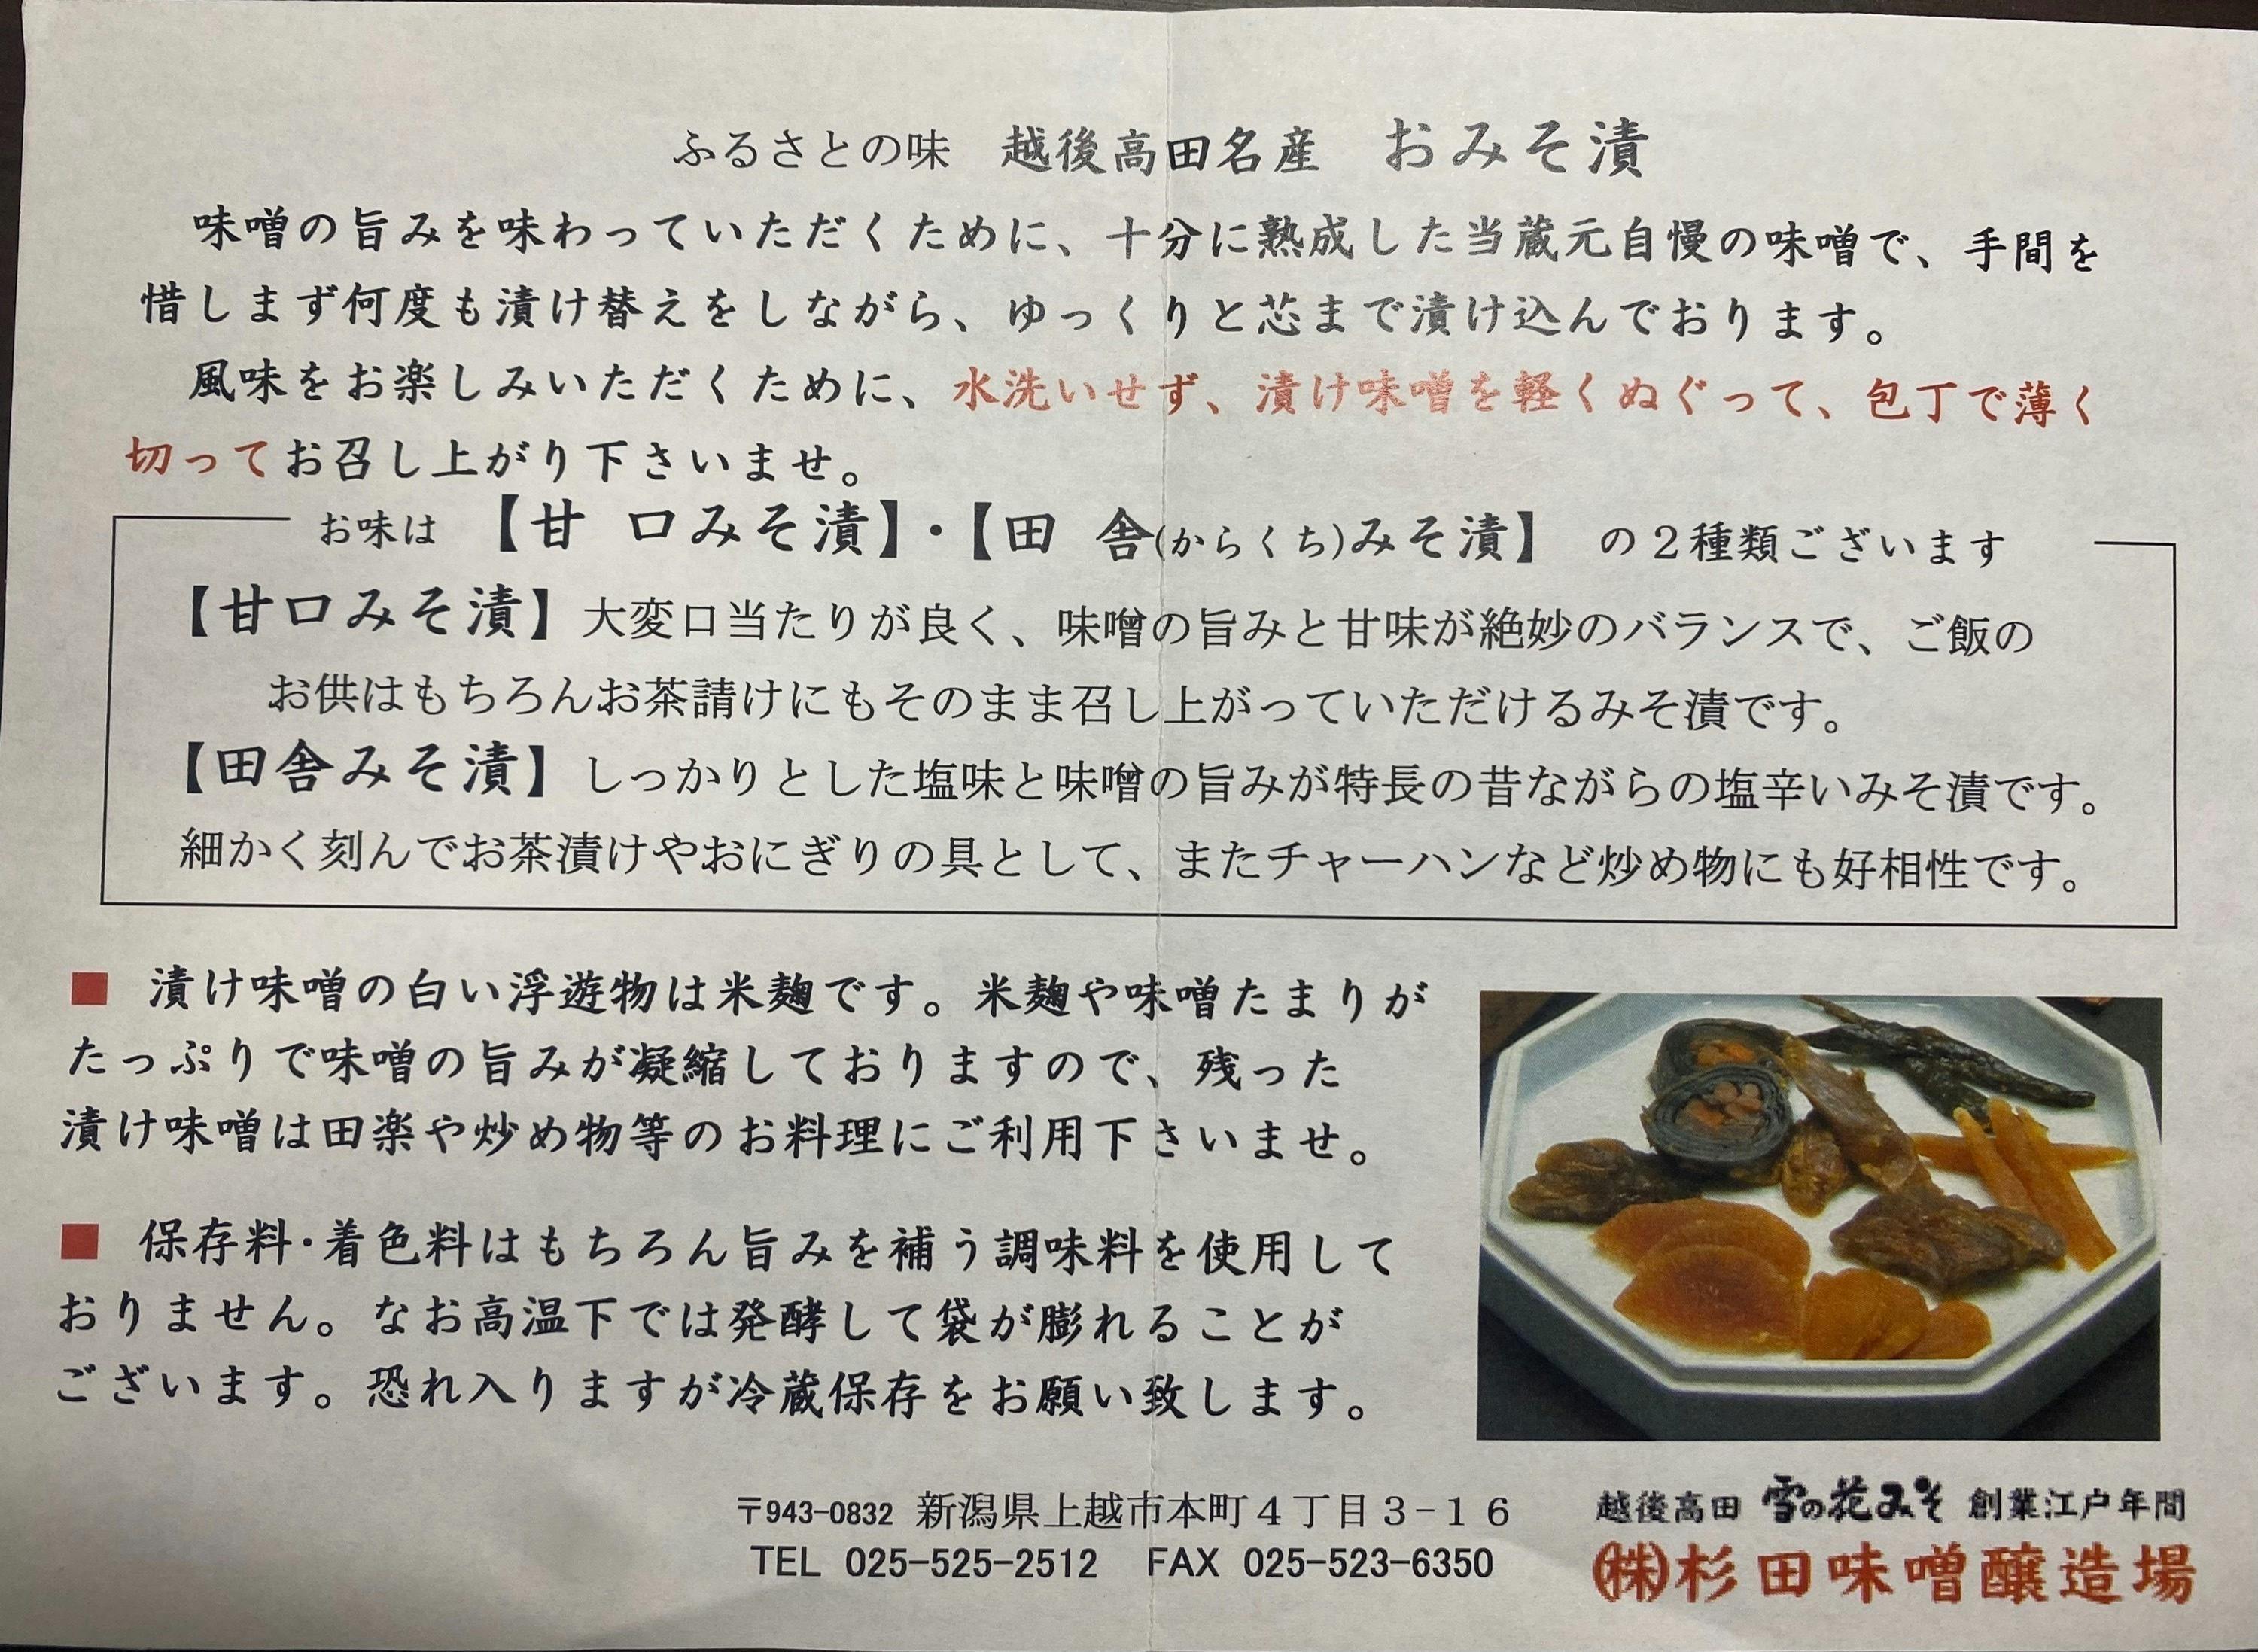 ふるさとの味　越後高田名産　おみそ漬
味噌の旨みを味わっていただくために、十分に熟成した当蔵元自慢の味噌で、手間を
惜しまず何度も漬け替えをしながら、ゆっくりと芯まで漬け込んでおります。
風味をお楽しみいただくために、水洗いせず、漬け味噌を軽くぬぐって、包丁で薄く
切ってお召し上がり下さいませ。
お味は　【甘　口みそ漬】・【田　舎(からくち)みそ漬】　の２種類ございます
【甘口みそ漬】大変口当たりが良く、味噌の旨みと甘味が絶妙のバランスで、ご飯の
お供はもちろんお茶請けにもそのまま召し上がっていただけるみそ漬です。
【田舎みそ漬】しっかりとした塩味と味噌の旨みが特長の昔ながらの塩辛いみそ漬です。
細かく刻んでお茶漬けやおにぎりの具として、またチャーハンなど炒め物にも好相性です。
■ 漬け味噌の白い浮遊物は米麹です。米麹や味噌たまりが
たっぷりで味噌の旨みが凝縮しておりますので、残った
漬け味噌は田楽や炒め物等のお料理にご利用下さいませ。
■ 保存料・着色料はもちろん旨みを補う調味料を使用して
おりません。なお高温下では発酵して袋が膨れることが
ございます。恐れ入りますが冷蔵保存をお願い致します。
〒943-0832 新潟県上越市本町４丁目３−１６
TEL 025-525-2512　FAX 025-523-6350
越後高田 雪の花みそ 創業江戸年間
㈱杉田味噌醸造場